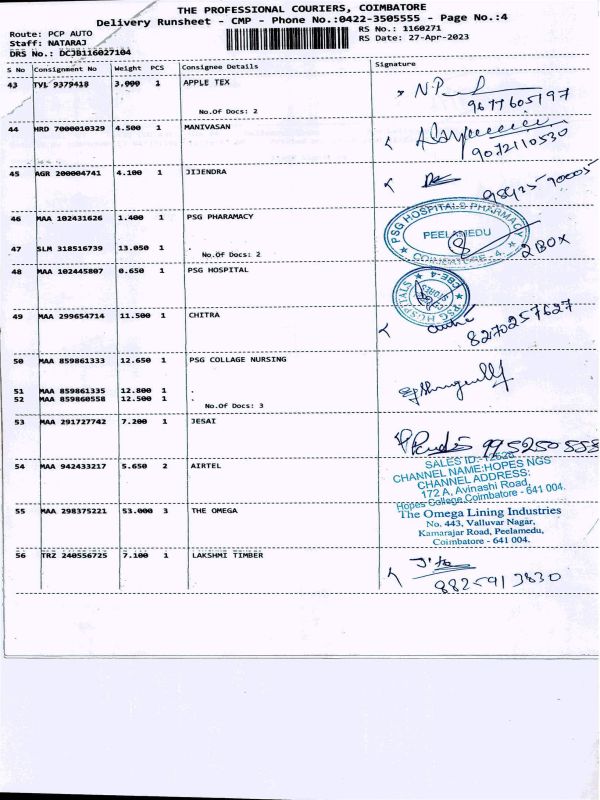 THE PROFESSIONAL COURIERS, COIMBATORE
Delivery Runsheet - CMP - Phone No.:0422-3505555 - Page No.:4
Route: PCP AUTO
Staff: NATARAJ
DRS No.: DCJB116027104
RS No.: 1160271
RS Date: 27-Apr-2023
S No Consignment No Weight PCS Consignee Details Signature
43 TVL 9379418 3.000 1 APPLE TEX
No.Of Docs: 2
9677605197
44 HRD 7000010329 4.500 1 MANIVASAN
9072110530
45 AGR 200004741 4.100 1 JIJENDRA
98425 90005
46 MAA 102431626 1.400 1 PSG PHARAMACY
PSG HOSPITALS PHARMACY
PEELAMEDU
COIMBATORE - 4.
2 BOX
47 SLM 318516739 13.050 1 .
No.Of Docs: 2
48 MAA 102445807 0.650 1 PSG HOSPITAL
PSG HOSPITALS
STORES
49 MAA 299654714 11.500 1 CHITRA
8270257627
50 MAA 859861333 12.650 1 PSG COLLAGE NURSING
51 MAA 859861335 12.800 1 .
52 MAA 859860558 12.500 1 .
No.Of Docs: 3
53 MAA 291727742 7.200 1 JESAI
995250558
54 MAA 942433217 5.650 2 AIRTEL
SALES ID:-12628
CHANNEL NAME:HOPES NGS
CHANNEL ADDRESS:
172 A, Avinashi Road,
Hopes College,Coimbatore - 641 004.
55 MAA 298375221 53.000 3 THE OMEGA
The Omega Lining Industries
No. 443, Valluvar Nagar,
Kamarajar Road, Peelamedu,
Coimbatore - 641 004.
56 TRZ 240556725 7.100 1 LAKSHMI TIMBER
8825913830